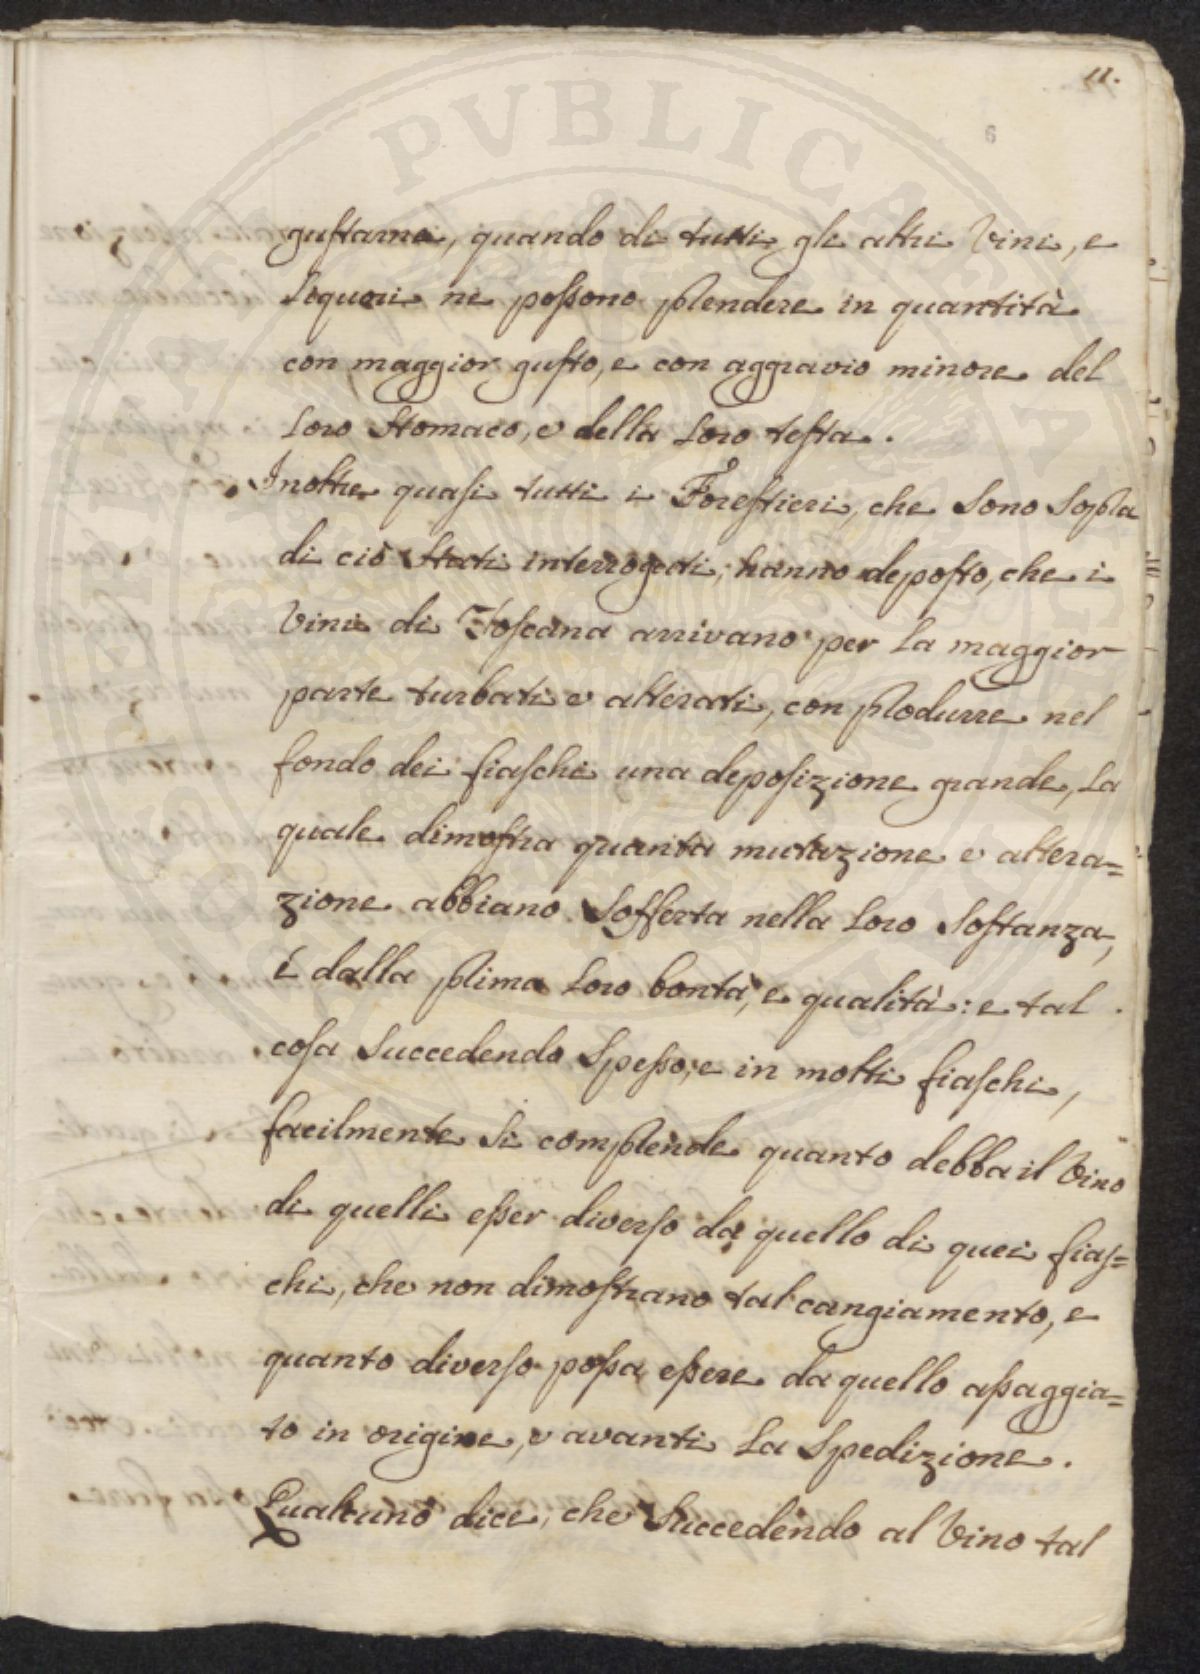 11.
6
gustarne, quando di tutti gli altri Vini, e
Liquori ne possono prendere in quantità
con maggior gusto, e con aggravio minore del
loro Stomaco, e della loro testa.
Inoltre quasi tutti i Forestieri, che sono sopra
di ciò stati interrogati, hanno deposto, che i
Vini di Toscana arrivano per la maggior
parte turbati e alterati, con produrre nel
fondo dei fiaschi una deposizione grande, la
quale dimostra quanta mutazione e altera=
zione abbiano Sofferta nella loro Sostanza,
E dalla prima loro bontà, e qualità: e tal
cosa succedendo Spesso, e in molti fiaschi,
facilmente si comprende quanto debba il Vino
di quelli esser diverso da quello di quei fias=
chi, che non dimostrano tal cangiamento, e
quanto diverso possa essere da quello assaggia=
to in origine, e avanti la Spedizione.
Qualcuno dice, che Succedendo al Vino tal